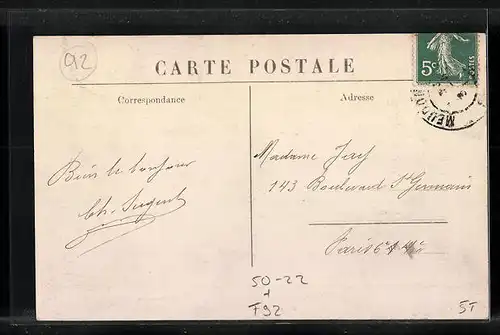 92
CARTE POSTALE
5c
POSTES
MEUDON
Correspondance
Adresse
Madame Jay
143 Boulevard St Germain
Paris 6e
Bien le bonheur
Ch. Sergent
50-22
F92
5T